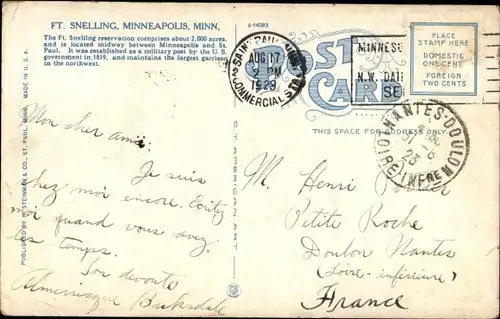 FT. SNELLING, MINNEAPOLIS, MINN,
The Ft. Snelling reservation comprises about 2,000 acres,
and is located midway between Minneapolis and St.
Paul. It was established as a military post by the U. S.
government in 1819, and maintains the largest garrison
in the northwest.
A-14083
SAINT PAUL, MINN.
AUG 17
2 PM
1923
COMMERCIAL STA.
POST
CARD
MINNES
N.W. DAI
SE
PLACE
STAMP HERE
DOMESTIC
ONE-CENT
FOREIGN
TWO CENTS
THIS SPACE FOR ADDRESS
NANTES-DOULON
LRE INFRE
23
PUBLISHED BY R. STEINMAN & CO., ST. PAUL, MINN. MADE IN U. S. A.
Mon cher ami,
Je suis
chez moi encore. Ecritez
moi quand vous avez
les temps.
Son devoute
Barksdale
M. Henri
Petite Roche
Doulon Nantes
(Loire-inférieure)
France